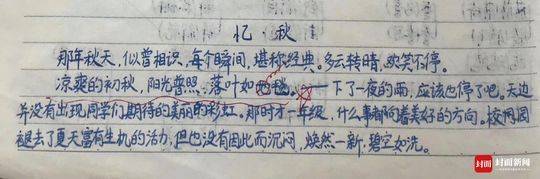 忆·秋
那年秋天，似曾相识，每个瞬间，堪称经典。多云转晴，欢笑不停。
凉爽的初秋，阳光普照，落叶如地毯，一下了一夜的雨，应该也停了吧。天边
并没有出现同学们期待的美丽的彩虹。那时才一年级，什么事都向着美好的方向。校园因
褪去了夏天富有生机的活力，但也没有因此而沉闷，焕然一新，碧空如洗。
封面新闻